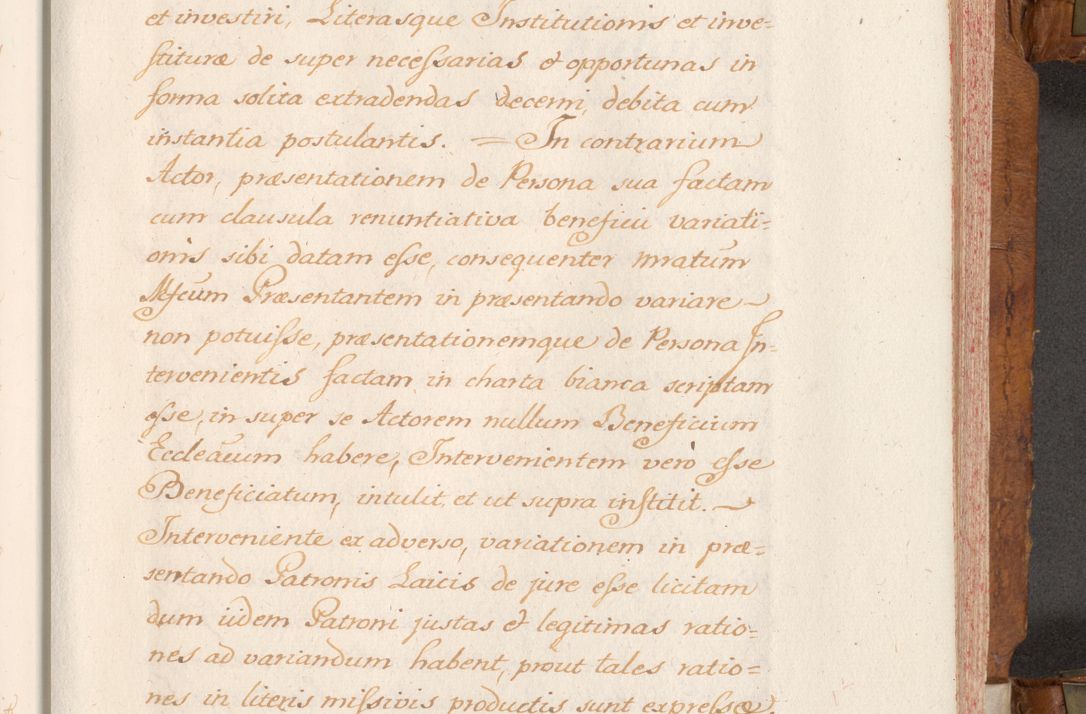 et investiri, Literasque Institutionis et inve=
stituræ de super necessarias & opportunas in
forma solita extradendas decerni, debita cum
instantia postulantis. = In contrarium
Actor, præsentationem de Persona sua factam
cum clausula renuntiativa beneficii variati=
onis sibi datam esse, consequenter
Præsentantem in præsentando variare
non potuisse, præsentationemque de Persona In=
tervenientis factam in charta bianca scriptam
esse, in super se Actorem nullum Beneficium
Eccleãum habere, Intervenientem verò esse
Beneficiatum, intulit et ut supra institit.
Interveniente ex adverso, variationem in præ=
sentando Patronis Laicis de jure esse licitam
dum iidem Patroni justas & legitimas ratio=
nes ad variandum habent, prout tales ratio=
nes in literis missivis productis sunt expressæ.